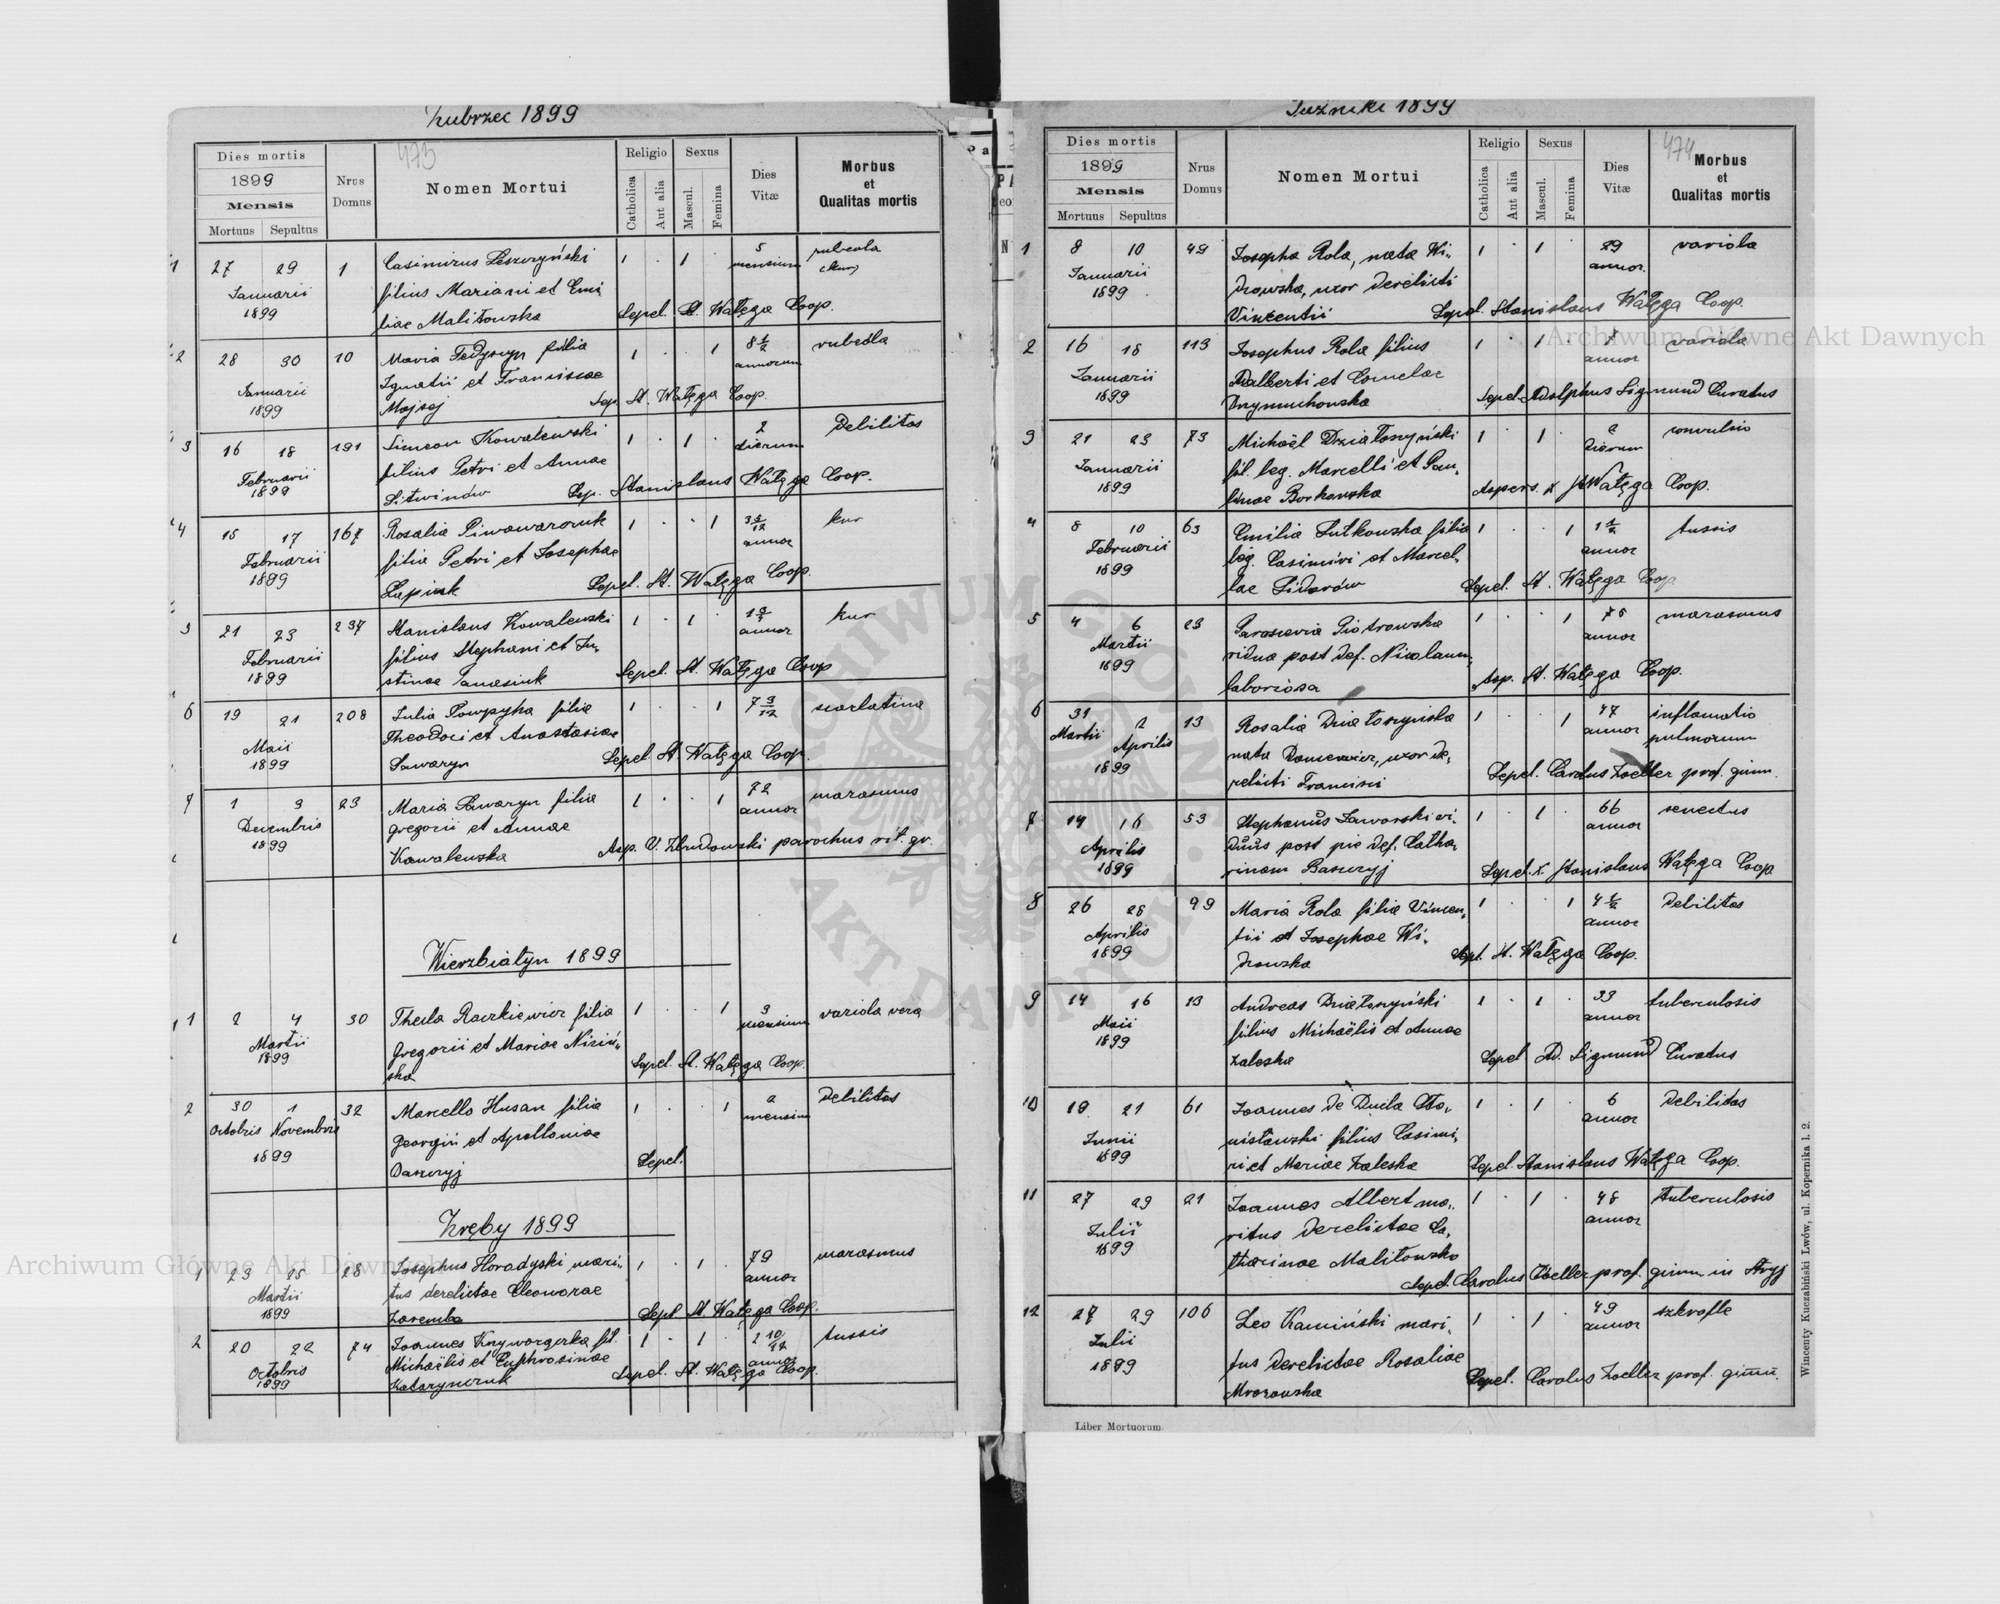 Zubrzec 1899
473
Dies mortis
1899
Mensis
Mortuus Sepultus
Nrus Domus
Nomen Mortui
Religio
Catholica
Aut alia
Sexus
Mascul.
Femina
Dies Vitæ
Morbus et Qualitas mortis
1 27 29 1 Casimirus Leszczyński 1 . 1 5 mensium rubeola (kur)
Januarii filius Mariani et Emi
1899 liae Malitowska Sepel. St. Wałęga Coop.
2 28 30 10 Maria Fedyszyn filia 1 . . 1 8 annorum rubeola
Januarii Ignatii et Franciscae
1899 Sep. St. Wałęga Coop.
3 16 18 191 Simeon Kowalewski 1 . 1 . 2 dierum Debilitas
Februarii filius Petri et Annae
1899 Litwinów Sep. Stanislaus Wałęga Coop.
4 15 17 167 Rosalia Piwowarczuk 1 . . 1 annor kur
Februarii filia Petri et Josephae
1899 Sepel. St. Wałęga Coop.
5 21 23 237 Stanislaus Kowalewski 1 . 1 . annor kur
Februarii filius Stephani et Ju-
1899 stinae Panasiuk Sepel. St. Wałęga Coop
6 19 21 208 Julia filia 1 . . 1 7 scarlatina
Maii Theodori et Anastasiae
1899 Sawaryn Sepel. St. Wałęga Coop.
7 1 3 23 Maria Sawaryn filia 1 . . 1 72 annor marasmus
Decembris gregorii et Annae
1899 Kowalewska Asp. V. parochus rit. gr.
Wierzbiatyn 1899
1 2 4 30 Thecla Raczkiewicz filia 1 . . 1 3 mensium variola vera
Martii Gregorii et Mariae Niziń-
1899 ska Sepel. St. Wałęga Coop.
2 30 1 32 Marcella Husan filia 1 . . 1 2 mensium Debilitas
Octobris Novembris Georgii et Apolloniae
1899 Daszczyj Sepel.
Zręby 1899
1 23 25 28 Josephus Horadyski mari- 1 . 1 . 79 annor marasmus
Martii tus derelictae Eleonorae
1899 Zaremba Sepel St. Wałęga Coop.
2 20 22 74 Joannes fil. 1 . 1 . 2 10/12 annor tussis
Octobris Michaëlis et Euphrosinae
1899 Katarynczuk Sepel. St. Wałęga Coop.
1899
474
Dies mortis
1899
Mensis
Mortuus Sepultus
Nrus Domus
Nomen Mortui
Religio
Catholica
Aut alia
Sexus
Mascul.
Femina
Dies Vitæ
Morbus et Qualitas mortis
1 8 10 49 Josepha Rola, nata Wi- 1 . 1 . annor. variola
Januarii drowska, uxor derelicti
1899 Vincentii Sepel. Stanislaus Wałęga Coop.
2 16 18 113 Josephus Rola filius 1 . 1 . annor variola
Januarii Adalberti et Corneliae
1899 Sepel. Adolphus Sigmund Curatus
3 21 23 73 Michaël Działoszyński 1 . 1 . 2 dierum convulsio
Januarii fil. leg. Marcelli et Pau-
1899 linae Borkowska Aspers. St Wałęga Coop.
4 8 10 63 Emilia Sutkowska filia 1 . . 1 1 annor tussis
Februarii leg. Casimiri et Marcel-
1899 lae Sidorów Sepel. St. Wałęga Coop
5 4 6 23 Parascevia Piotrowska 1 . . 1 75 annor marasmus
Martii vidua post def. Nicolaum,
1899 laboriosa Asp. St. Wałęga Coop.
6 31 2 13 Rosalia Działoszyńska 1 . . 1 47 annor inflamatio pulmorum
Martii Aprilis nata uxor de-
1899 relicti Francisci Sepel. Carolus Zoeller prof. gimn.
7 14 16 53 Stephanus Jaworski vi- 1 . 1 . 66 annor senectus
Aprilis duus post pie def. Catha-
1899 rinam Baszczyj Sepel. x. Stanislaus Wałęga Coop
8 26 28 99 Maria Rola filia Vincen- 1 . . 1 4 annor Debilitas
Aprilis tii et Josephae Wi-
1899 drowska Sepel. St. Wałęga Coop.
9 14 16 13 Andreas Działoszyński 1 . 1 . 33 annor tuberculosis
Maii filius Michaëlis et Annae
1899 Zaleska Sepel Ad. Sigmund Curatus
10 19 21 61 Joannes de 1 . 1 . 6 annor Debilitas
Junii filius Casimi-
1899 ri et Mariae Zaleska Sepel. Stanislaus Wałęga Coop.
11 27 29 21 Joannes Albert ma- 1 . 1 . 48 annor tuberculosis
Julii ritus derelictae Ca-
1899 tharinae Malitowska Sepel. Carolus Zoeller prof. gimn. in Stryj
12 27 29 106 Leo Kamiński mari- 1 . 1 . 49 annor szkrofle
Julii tus derelictae Rosaliae
1899 Mrozowska Sepel. Carolus Zoeller prof. gimn.
Liber Mortuorum.
Wincenty Kuczabiński Lwów, ul. Kopernika l. 2.
Archiwum Główne Akt Dawnych
Archiwum Główne Akt Dawnych
ARCHIWUM GŁÓWNE AKT DAWNYCH